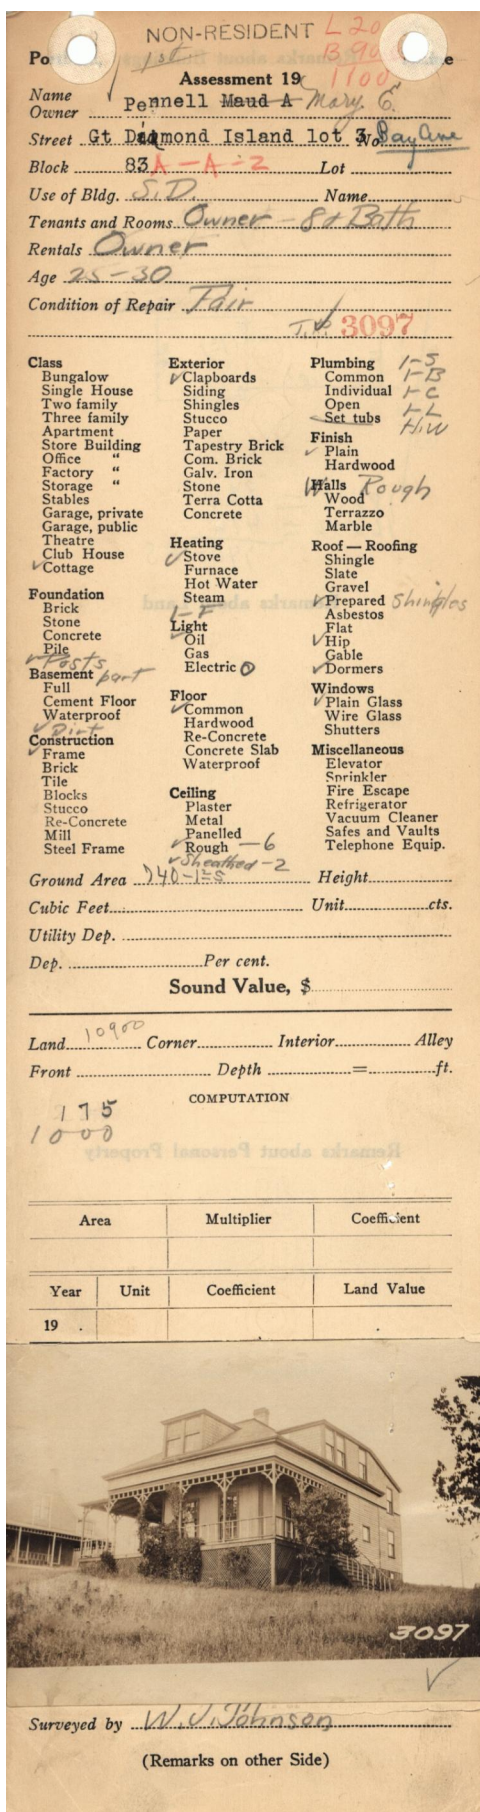 NON-RESIDENT L 20
Po 1st B 90 e
Assessment 19 1100
Name
Owner Pennell Maud A Mary E.
Street Gt Diamond Island lot 3 No Bay Ave
Block 83 A-A-2 Lot
Use of Bldg. S.D. Name
Tenants and Rooms Owner - 8 & Bath
Rentals Owner
Age 25-30
Condition of Repair Fair
3097
Class
Bungalow
Single House
Two family
Three family
Apartment
Store Building
Office "
Factory "
Storage "
Stables
Garage, private
Garage, public
Theatre
Club House
✓ Cottage
Foundation
Brick
Stone
Concrete
Pile
✓ Posts
Basement part
Full
Cement Floor
Waterproof
✓ Dirt
Construction
✓ Frame
Brick
Tile
Blocks
Stucco
Re-Concrete
Mill
Steel Frame
Exterior
✓ Clapboards
Siding
Shingles
Stucco
Paper
Tapestry Brick
Com. Brick
Galv. Iron
Stone
Terra Cotta
Concrete
Heating
✓ Stove
Furnace
Hot Water
Steam
1-F
Light
✓ Oil
Gas
Electric O
Floor
✓ Common
Hardwood
Re-Concrete
Concrete Slab
Waterproof
Ceiling
Plaster
Metal
Panelled
✓ Rough - 6
✓ Sheathed - 2
Plumbing 1-S
Common 1-B
Individual 1-C
Open 1-L
Set tubs H.W
Finish
✓ Plain
Hardwood
Walls Rough
Wood
Terrazzo
Marble
Roof — Roofing
Shingle
Slate
Gravel
✓ Prepared Shingles
Asbestos
Flat
✓ Hip
Gable
✓ Dormers
Windows
✓ Plain Glass
Wire Glass
Shutters
Miscellaneous
Elevator
Sprinkler
Fire Escape
Refrigerator
Vacuum Cleaner
Safes and Vaults
Telephone Equip.
Ground Area 740-1 Height
Cubic Feet Unit cts.
Utility Dep.
Dep. Per cent.
Sound Value, $
Land 10900 Corner Interior Alley
Front Depth = ft.
COMPUTATION
175
1000
Area Multiplier Coefficient
Year Unit Coefficient Land Value
19 .
3097
Surveyed by W. J. Johnson
(Remarks on other Side)